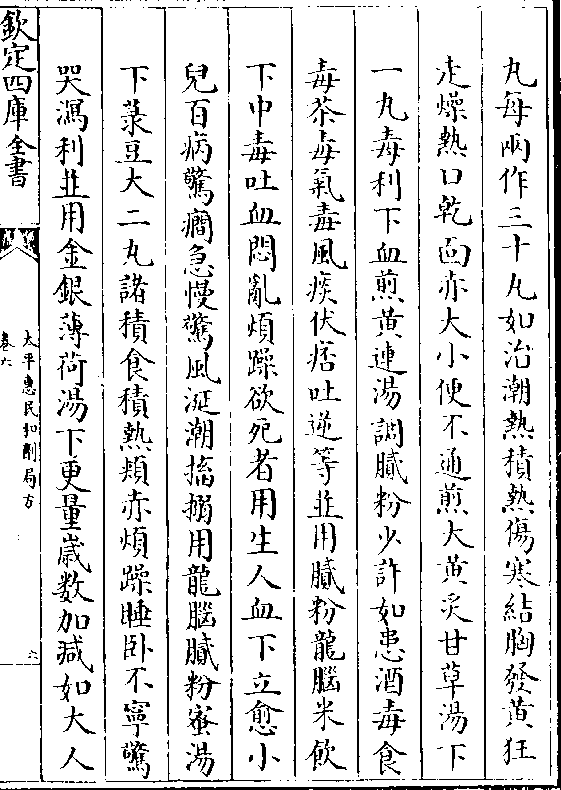 丸每兩作三十丸如治潮熱積熱傷寒結胸發黄狂
走燥熱口乾面赤大小便不通煎大黄炙甘草湯下
一丸毒利下血煎黄連湯調膩粉少許如患酒毒食
毒茶毒氣毒風痰伏痞吐逆等並用膩粉龍腦米飲
下中毒吐血悶亂煩躁欲死者用生人血下立愈小
兒百病驚癎急慢驚風涎潮搐搦用龍腦膩粉蜜湯
下菉豆大二丸諸積食積熱頰赤煩躁睡卧不寧驚
哭瀉利並用金銀薄荷湯下更量嵗數加减如大人
欽定四庫全書
太平惠民和劑局方
卷六
六